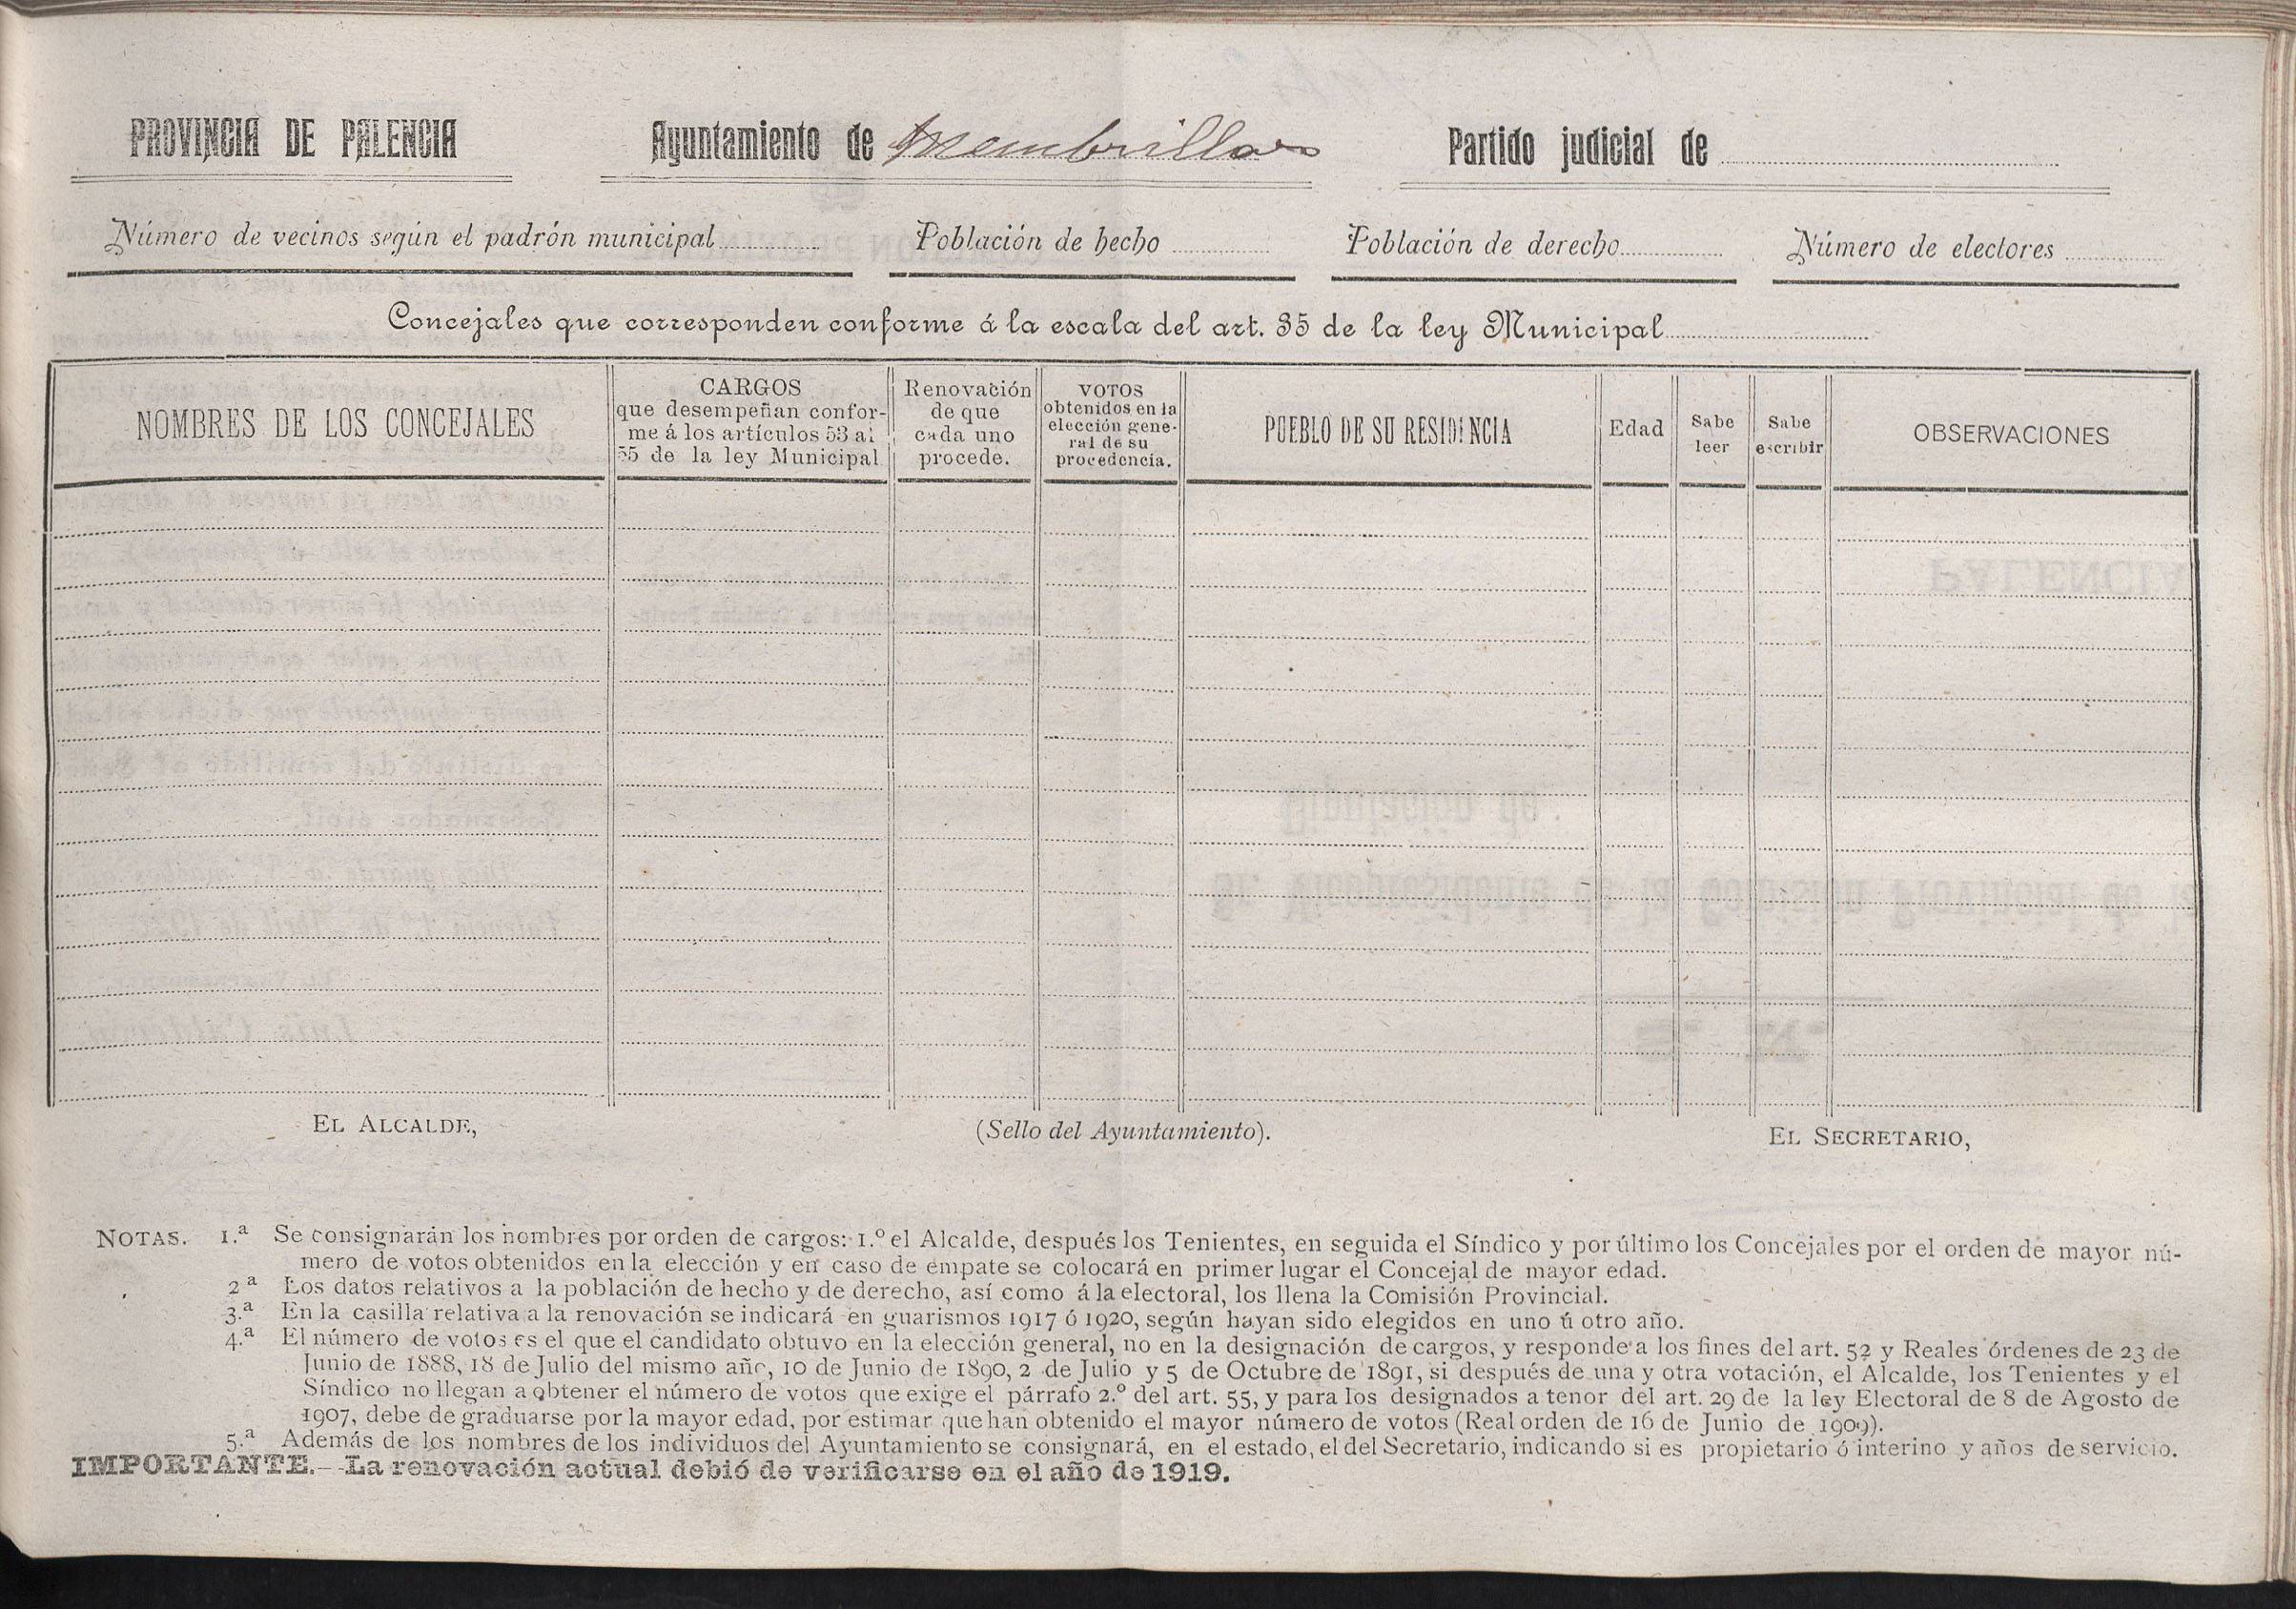 PROVINCIA DE PALENCIA Ayuntamiento de Membrillar Partido judicial de
Número de vecinos según el padrón municipal Población de hecho Población de derecho Número de electores
Concejales que corresponden conforme á la escala del art. 35 de la ley Municipal
NOMBRES DE LOS CONCEJALES
CARGOS
que desempeñan confor-
me á los artículos 53 al
55 de la ley Municipal
Renovación
de que
cada uno
procede.
VOTOS
obtenidos en la
elección gene-
ral de su
procedencia.
PUEBLO DE SU RESIDENCIA
Edad
Sabe
leer
Sabe
escribir
OBSERVACIONES
EL ALCALDE,
(Sello del Ayuntamiento).
EL SECRETARIO,
NOTAS. 1.ª Se consignarán los nombres por orden de cargos: 1.º el Alcalde, después los Tenientes, en seguida el Síndico y por último los Concejales por el orden de mayor nú-
mero de votos obtenidos en la elección y en caso de empate se colocará en primer lugar el Concejal de mayor edad.
2ª Los datos relativos a la población de hecho y de derecho, así como á la electoral, los llena la Comisión Provincial.
3.ª En la casilla relativa a la renovación se indicará en guarismos 1917 ó 1920, según hayan sido elegidos en uno ú otro año.
4.ª El número de votos es el que el candidato obtuvo en la elección general, no en la designación de cargos, y responde a los fines del art. 52 y Reales órdenes de 23 de
Junio de 1888, 18 de Julio del mismo año, 10 de Junio de 1890, 2 de Julio y 5 de Octubre de 1891, si después de una y otra votación, el Alcalde, los Tenientes y el
Síndico no llegan a obtener el número de votos que exige el párrafo 2.º del art. 55, y para los designados a tenor del art. 29 de la ley Electoral de 8 de Agosto de
1907, debe de graduarse por la mayor edad, por estimar que han obtenido el mayor número de votos (Real orden de 16 de Junio de 1909).
5.ª Además de los nombres de los individuos del Ayuntamiento se consignará, en el estado, el del Secretario, indicando si es propietario ó interino y años de servicio.
IMPORTANTE.—La renovación actual debió de verificarse en el año de 1919.